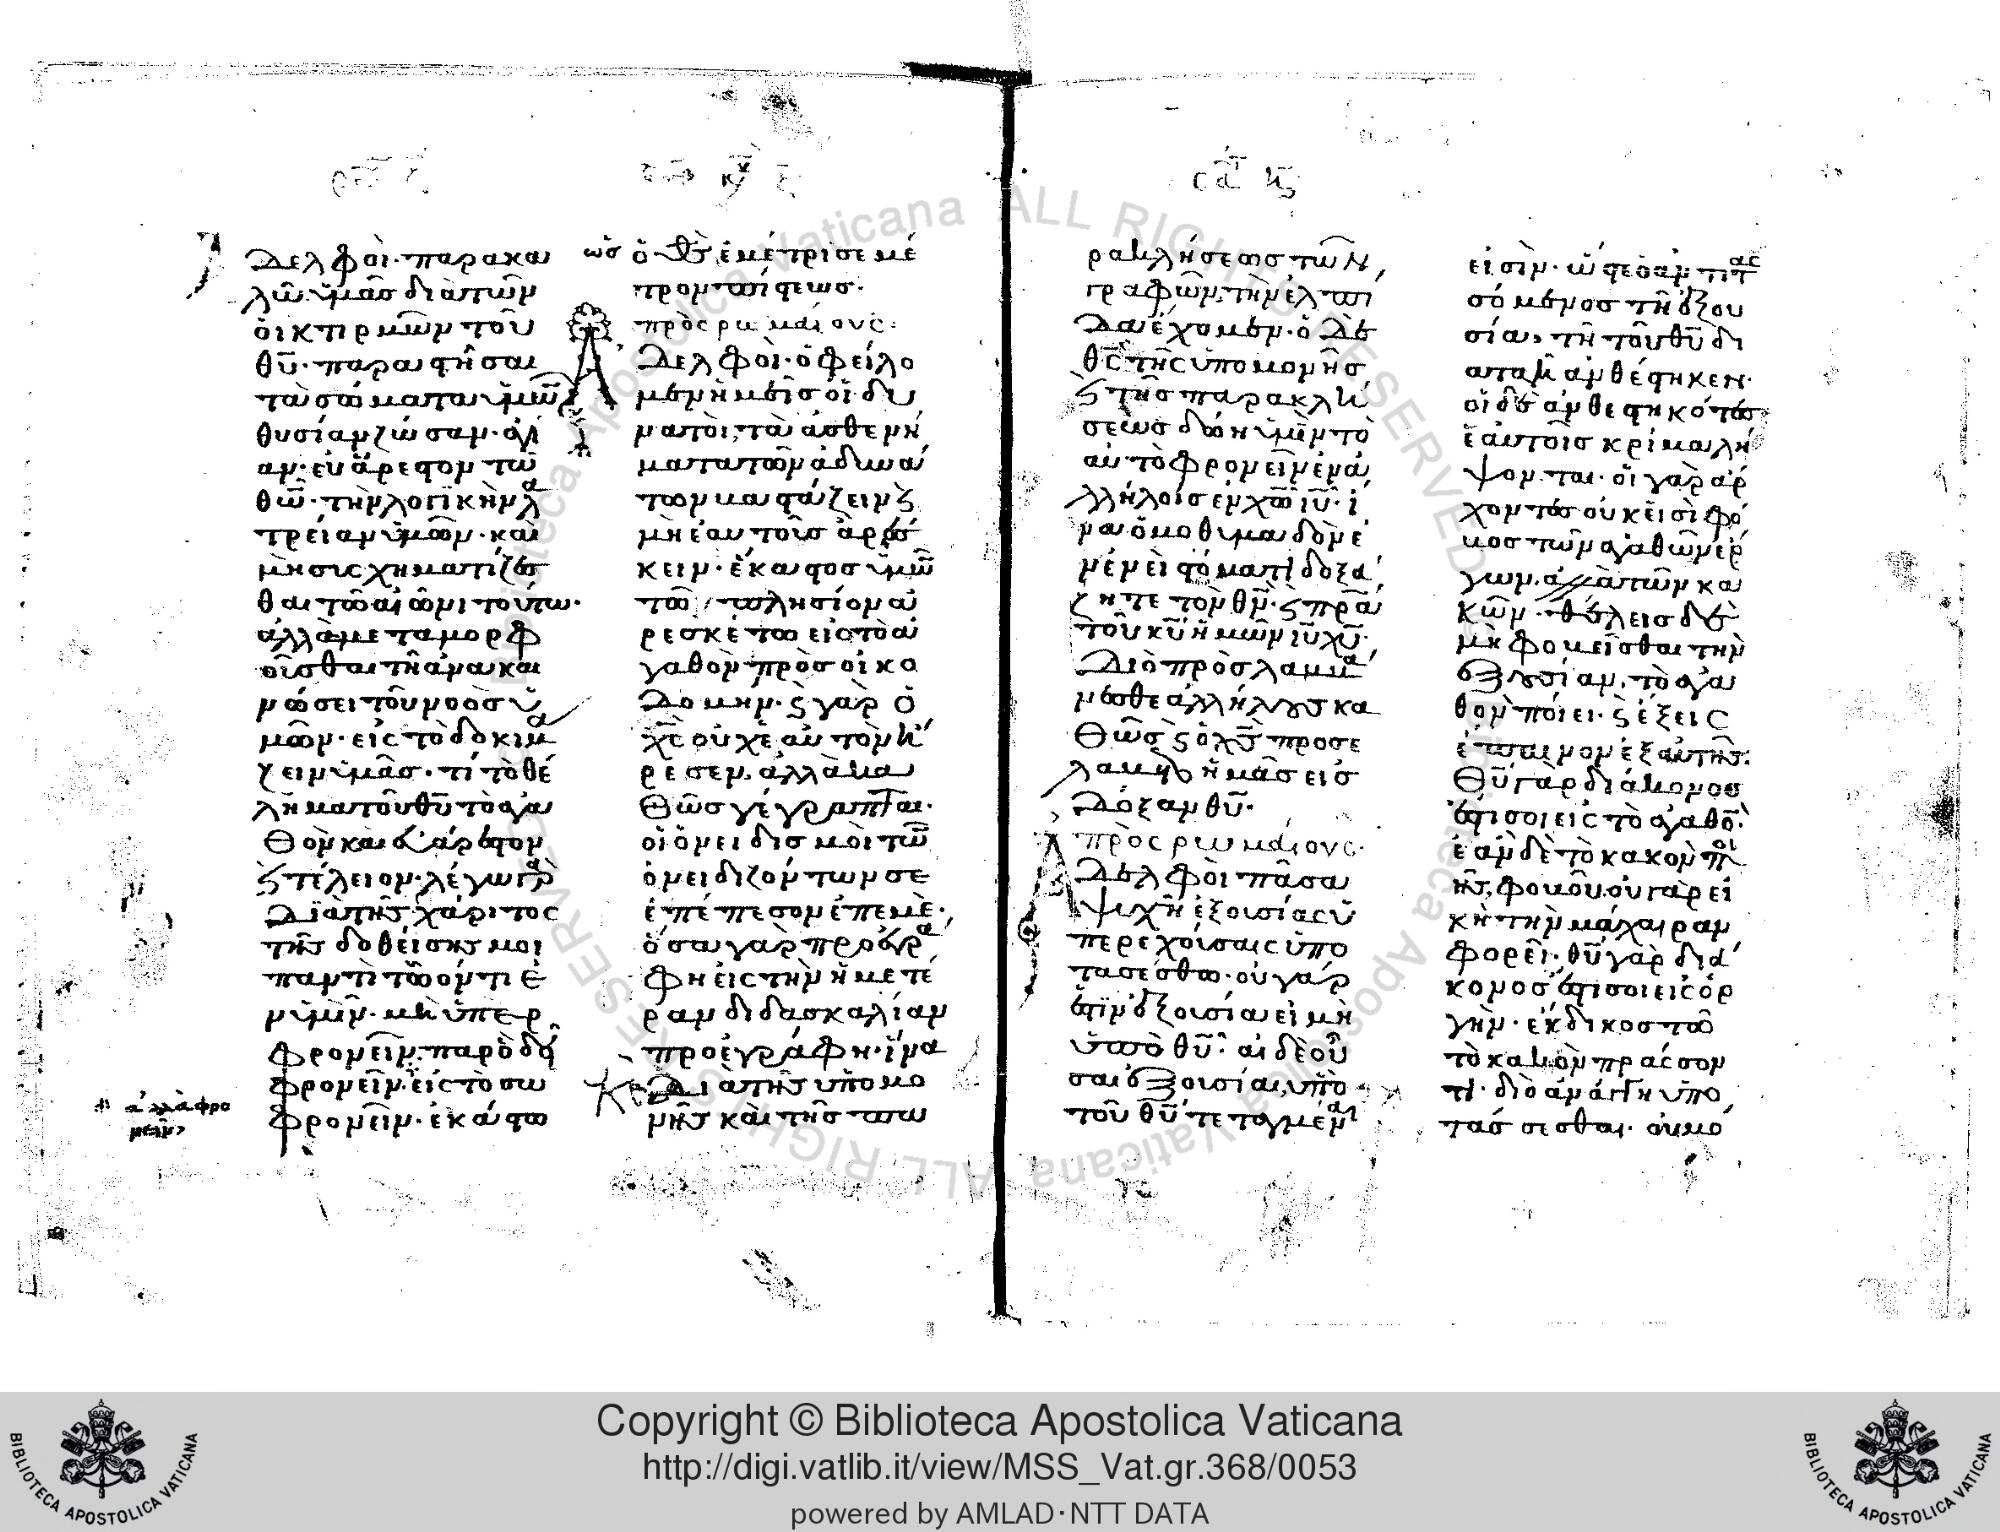 δελφοὶ· παρακα
λῶ ὑμᾶσ διὰ τῶν
οἰκτιρμῶν τοῦ
θυ̅· παραστῆσαι
τὰ σώματα ὑμῶ̅
θυσίαν ζῶσαν· ἁγί
αν· εὐάρεστον τῶ
θω̅· τὴν λογικὴν λα
τρείαν ὑμῶν· καὶ
μὴ συσχηματίζεσ
θαι τῶ αἰῶνι τούτω·
ἀλλὰ μεταμορφ
οῦσθαι τῆ ἀνακαι
νώσει τοῦ νοὸσ ὑ
μῶν· εἰς τὸ δοκιμα
ζειν ὑμᾶσ· τί τὸ θέ
λημα τοῦ θυ̅ τὸ ἀγα
θὸν καὶ εὐάρεστον
ϗ τέλειον· λέγω γὰρ
διὰ τῆσ χάριτος
τῆσ δοθείσησ μοι
παντὶ τῶ ὄντι ἐ
ν ὑμῖν· μὴ ὑπερ
φρονεῖν· παρ ὃ δεῖ
φρονεῖν· εἰς τὸ σω
φρονεῖν· ἑκάστω
ἀλλὰ φρο
νεῖν
ὡσ ὁ θσ̅ ἐμέτρισε μέ
τρον πίστεωσ·
πρὸς ρωμαίους:
Ἀδελφοὶ· ὀφείλο
μεν ἡμεῖσ οἱ δυ
νατοὶ, τὰ ἀσθενή
ματα τῶν ἀδυνά
των βαστάζειν ϗ
μὴ ἑαυτοῖσ ἀρέσ
κειν· ἕκαστοσ ὑμῶ̅
τῶ πλησίον ἀ
ρεσκέτω εἰς τὸ ἀ
γαθὸν πρὸσ οἰκο
δομήν· ϗ γὰρ ὁ
χσ̅ οὐχ ἑαυτὸν ἤ
ρεσεν, ἀλλὰ κα
θὼσ γέγραπται·
οἱ ὀνειδισμοὶ τῶ̅
ὀνειδιζόντων σε
ἐπέπεσον ἐπ ἐμὲ·
ὅσα γὰρ προεγρα
φη εἰς τὴν ἡμετέ
ραν διδασκαλίαν
προεγράφη· ἵνα
διὰ τῆσ ὑπομο
νῆσ καὶ τῆσ πα
ρακλήσεωσ τῶν
γραφῶν, τὴν ἐλπί
δα ἔχομεν· ὁ δὲ
θσ̅ τῆς ὑπομονῆσ
ϗ τῆσ παρακλή
σεωσ δώη ὑμῖν τὸ
αὐτὸ φρονεῖν ἐν ἀ
λλήλοισ ἐν χω̅ ιυ̅· ἵ
να ὁμοθυμαδὸν ἐ
ν ἑνὶ στόματι δοξά
ζητε τὸν θν̅· ϗ πρα̅
τοῦ κυ̅ ἡμῶν ιυ̅ χυ̅·
Διὸ προσλαμβά
νεσθε ἀλλήλουσ κα
θὼσ ϗ ὁ χσ̅ προσε
λάβετο ἡμᾶσ εἰσ
δόξαν θυ̅·
πρὸς ρωμαίους·
Ἀδελφοὶ πᾶσα
ψυχὴ ἐξουσίαις ὑ
περεχούσαις ὑπο
τασσέσθω· οὐ γάρ
ἐστιν ἐξουσία εἰ μὴ
ὑπὸ θυ̅· αἱ δὲ οὖ
σαι ἐξουσίαι, ὑπὸ
τοῦ θυ̅ τεταγμέναι
εἰσὶν· ὥστε ὁ ἀντιτας
σόμενοσ τῆ ἐξου
σία, τῆ τοῦ θυ̅ δι
αταγῆ ἀνθέστηκεν·
οἱ δὲ ἀνθεστηκότεσ
ἑαυτοῖσ κρίμα λή
ψονται· οἱ γὰρ ἄρ
χοντεσ οὐκ εἰσὶ φό
βοσ τῶν ἀγαθῶν ἔρ
γων, ἀλλὰ τῶν κα
κῶν· θέλεισ δὲ
μὴ φοβεῖσθαι τὴν
ἐξουσίαν, τὸ ἀγα
θὸν ποίει· ϗ ἕξεις
ἔπαινον ἐξ αὐτῆσ·
Θυ̅ γὰρ διάκονοσ
ἐστι σοι εἰς τὸ ἀγαθὸ̅·
ἐὰν δὲ τὸ κακὸν ποι
ῆσ, φοβοῦ· οὐ γὰρ εἰ
κὴ τὴν μάχαιραν
φορεῖ· θυ̅ γὰρ διά
κονοσ ἐστι σοι εἰς ὀρ
γὴν· ἔκδικοσ τῶ
τὸ κακὸν πράσσον
τι· διὸ ἀνάγκη ὑπο
τάσσεσθαι· οὐ μό
Copyright © Biblioteca Apostolica Vaticana
http://digi.vatlib.it/view/MSS_Vat.gr.368/0053
powered by AMLAD·NTT DATA
BIBLIOTECA APOSTOLICA VATICANA
BIBLIOTECA APOSTOLICA VATICANA